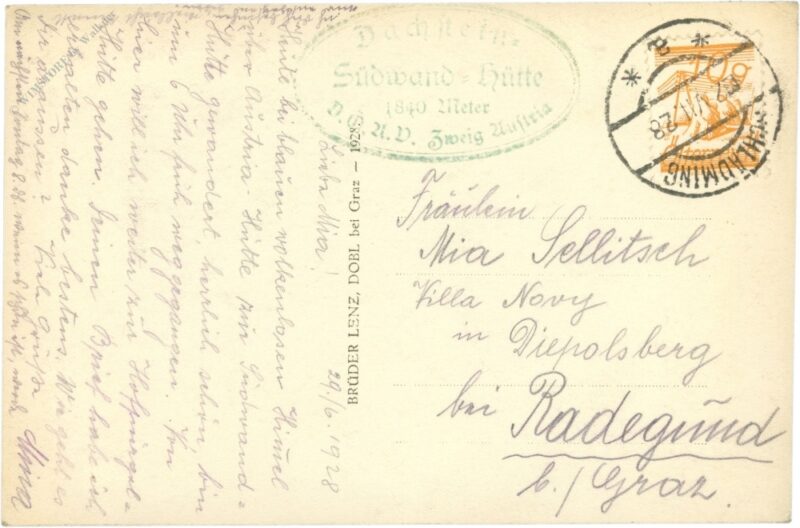 Dachstein-
Südwand-Hütte
1840 Meter
D. Ö. A. V. Zweig Austria
SCHLADMING
BRÜDER LENZ, DOBL bei Graz — 1928
29./6. 1928
Liebe Mia!
Heute bei blauen wolkenlosen Himmel
über Austria-Hütte zur Südwand-
Hütte gewandert, herrlich schön, bin
um 6 Uhr früh weggegangen. Von
hier will ich weiter zur Hofpürgel-
Hütte gehen. Deinen Brief habe ich
erhalten danke bestens. Wie geht es
Dir draussen? Viele Grüße
Fräulein
Mia Sellitsch
Villa Navy
in
Diepolsberg
bei
Radegund
b./Graz.